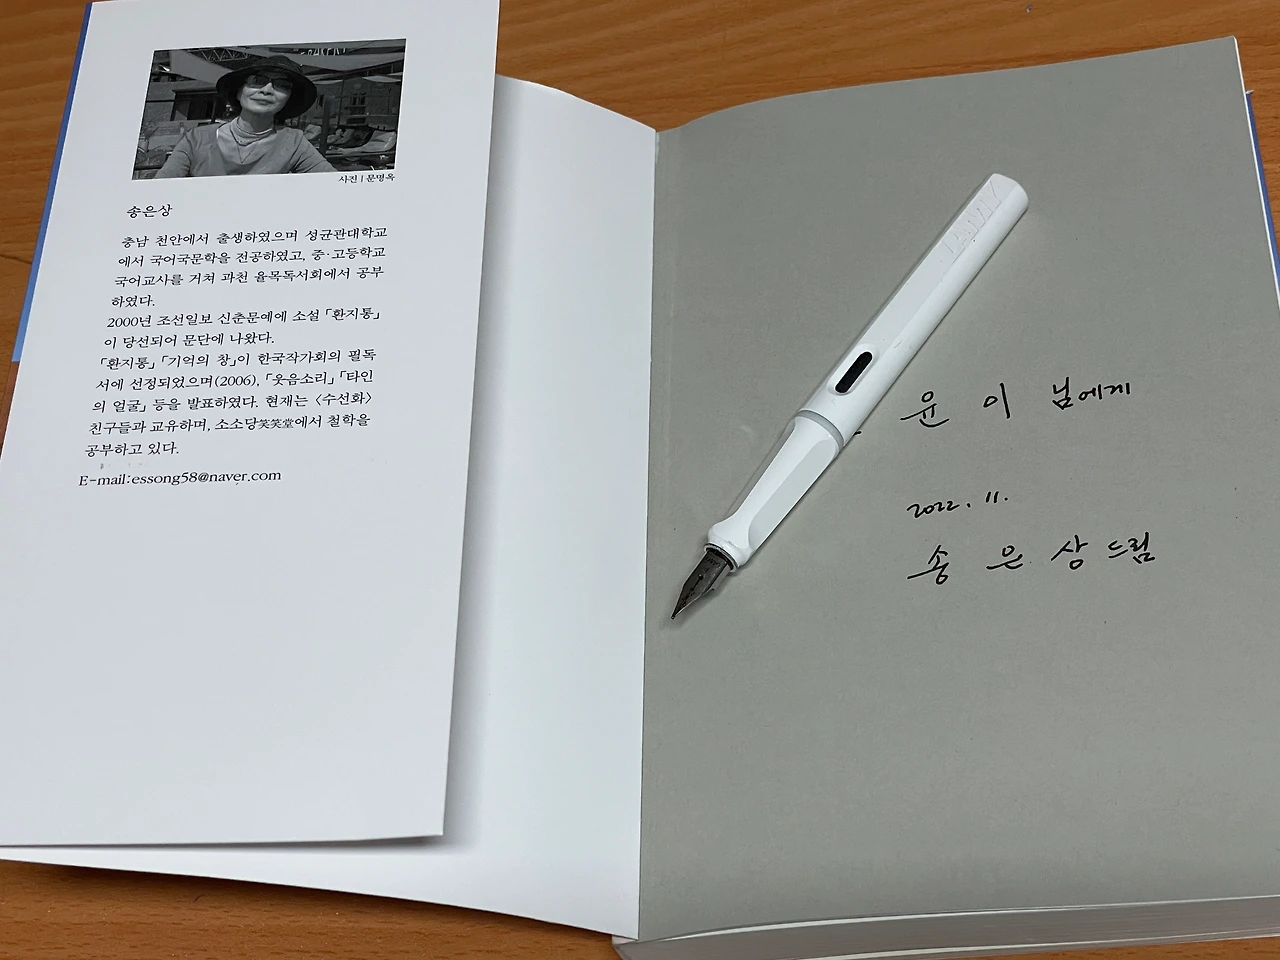 사진 | 문명옥
송은상
충남 천안에서 출생하였으며 성균관대학교
에서 국어국문학을 전공하였고, 중·고등학교
국어교사를 거쳐 과천 율목독서회에서 공부
하였다.
2000년 조선일보 신춘문예에 소설 「환지통」
이 당선되어 문단에 나왔다.
「환지통」 「기억의 창」이 한국작가회의 필독
서에 선정되었으며(2006), 「웃음소리」 「타인
의 얼굴」 등을 발표하였다. 현재는 〈수선화〉
친구들과 교유하며, 소소당笑笑堂에서 철학을
공부하고 있다.
E-mail:essong58@naver.com
LAMY
윤 이 님에게
2022. 11.
송 은 상 드림